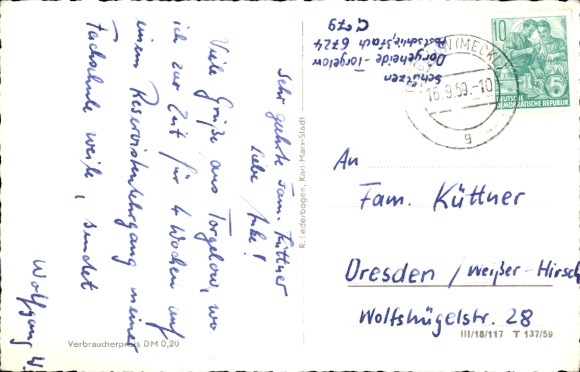 Sehr geehrte Fam. Küttner
Liebe Anke!
Viele Grüße aus Torgelow, wo
ich zur Zeit für 4 Wochen auf
einem Reservistenlehrgang meiner
Fachschule weile, sendet
Wolfgang W.
Verbraucherpreis DM 0,20
R. Lederbogen, Karl-Marx-Stadt
Schützen
Dorgeheide-Torgelow
Postschließfach 6724
C 079
(MECKL)
16.9.59.-10
g
10
DEUTSCHE
DEMOKRATISCHE REPUBLIK
An
Fam. Küttner
Dresden / Weißer-Hirsch
Wolfshügelstr. 28
III/18/117 T 137/59